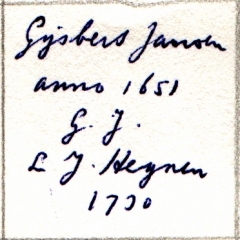 Gijsbers Jansen
anno 1651
G. J.
L J. Heynen
1730